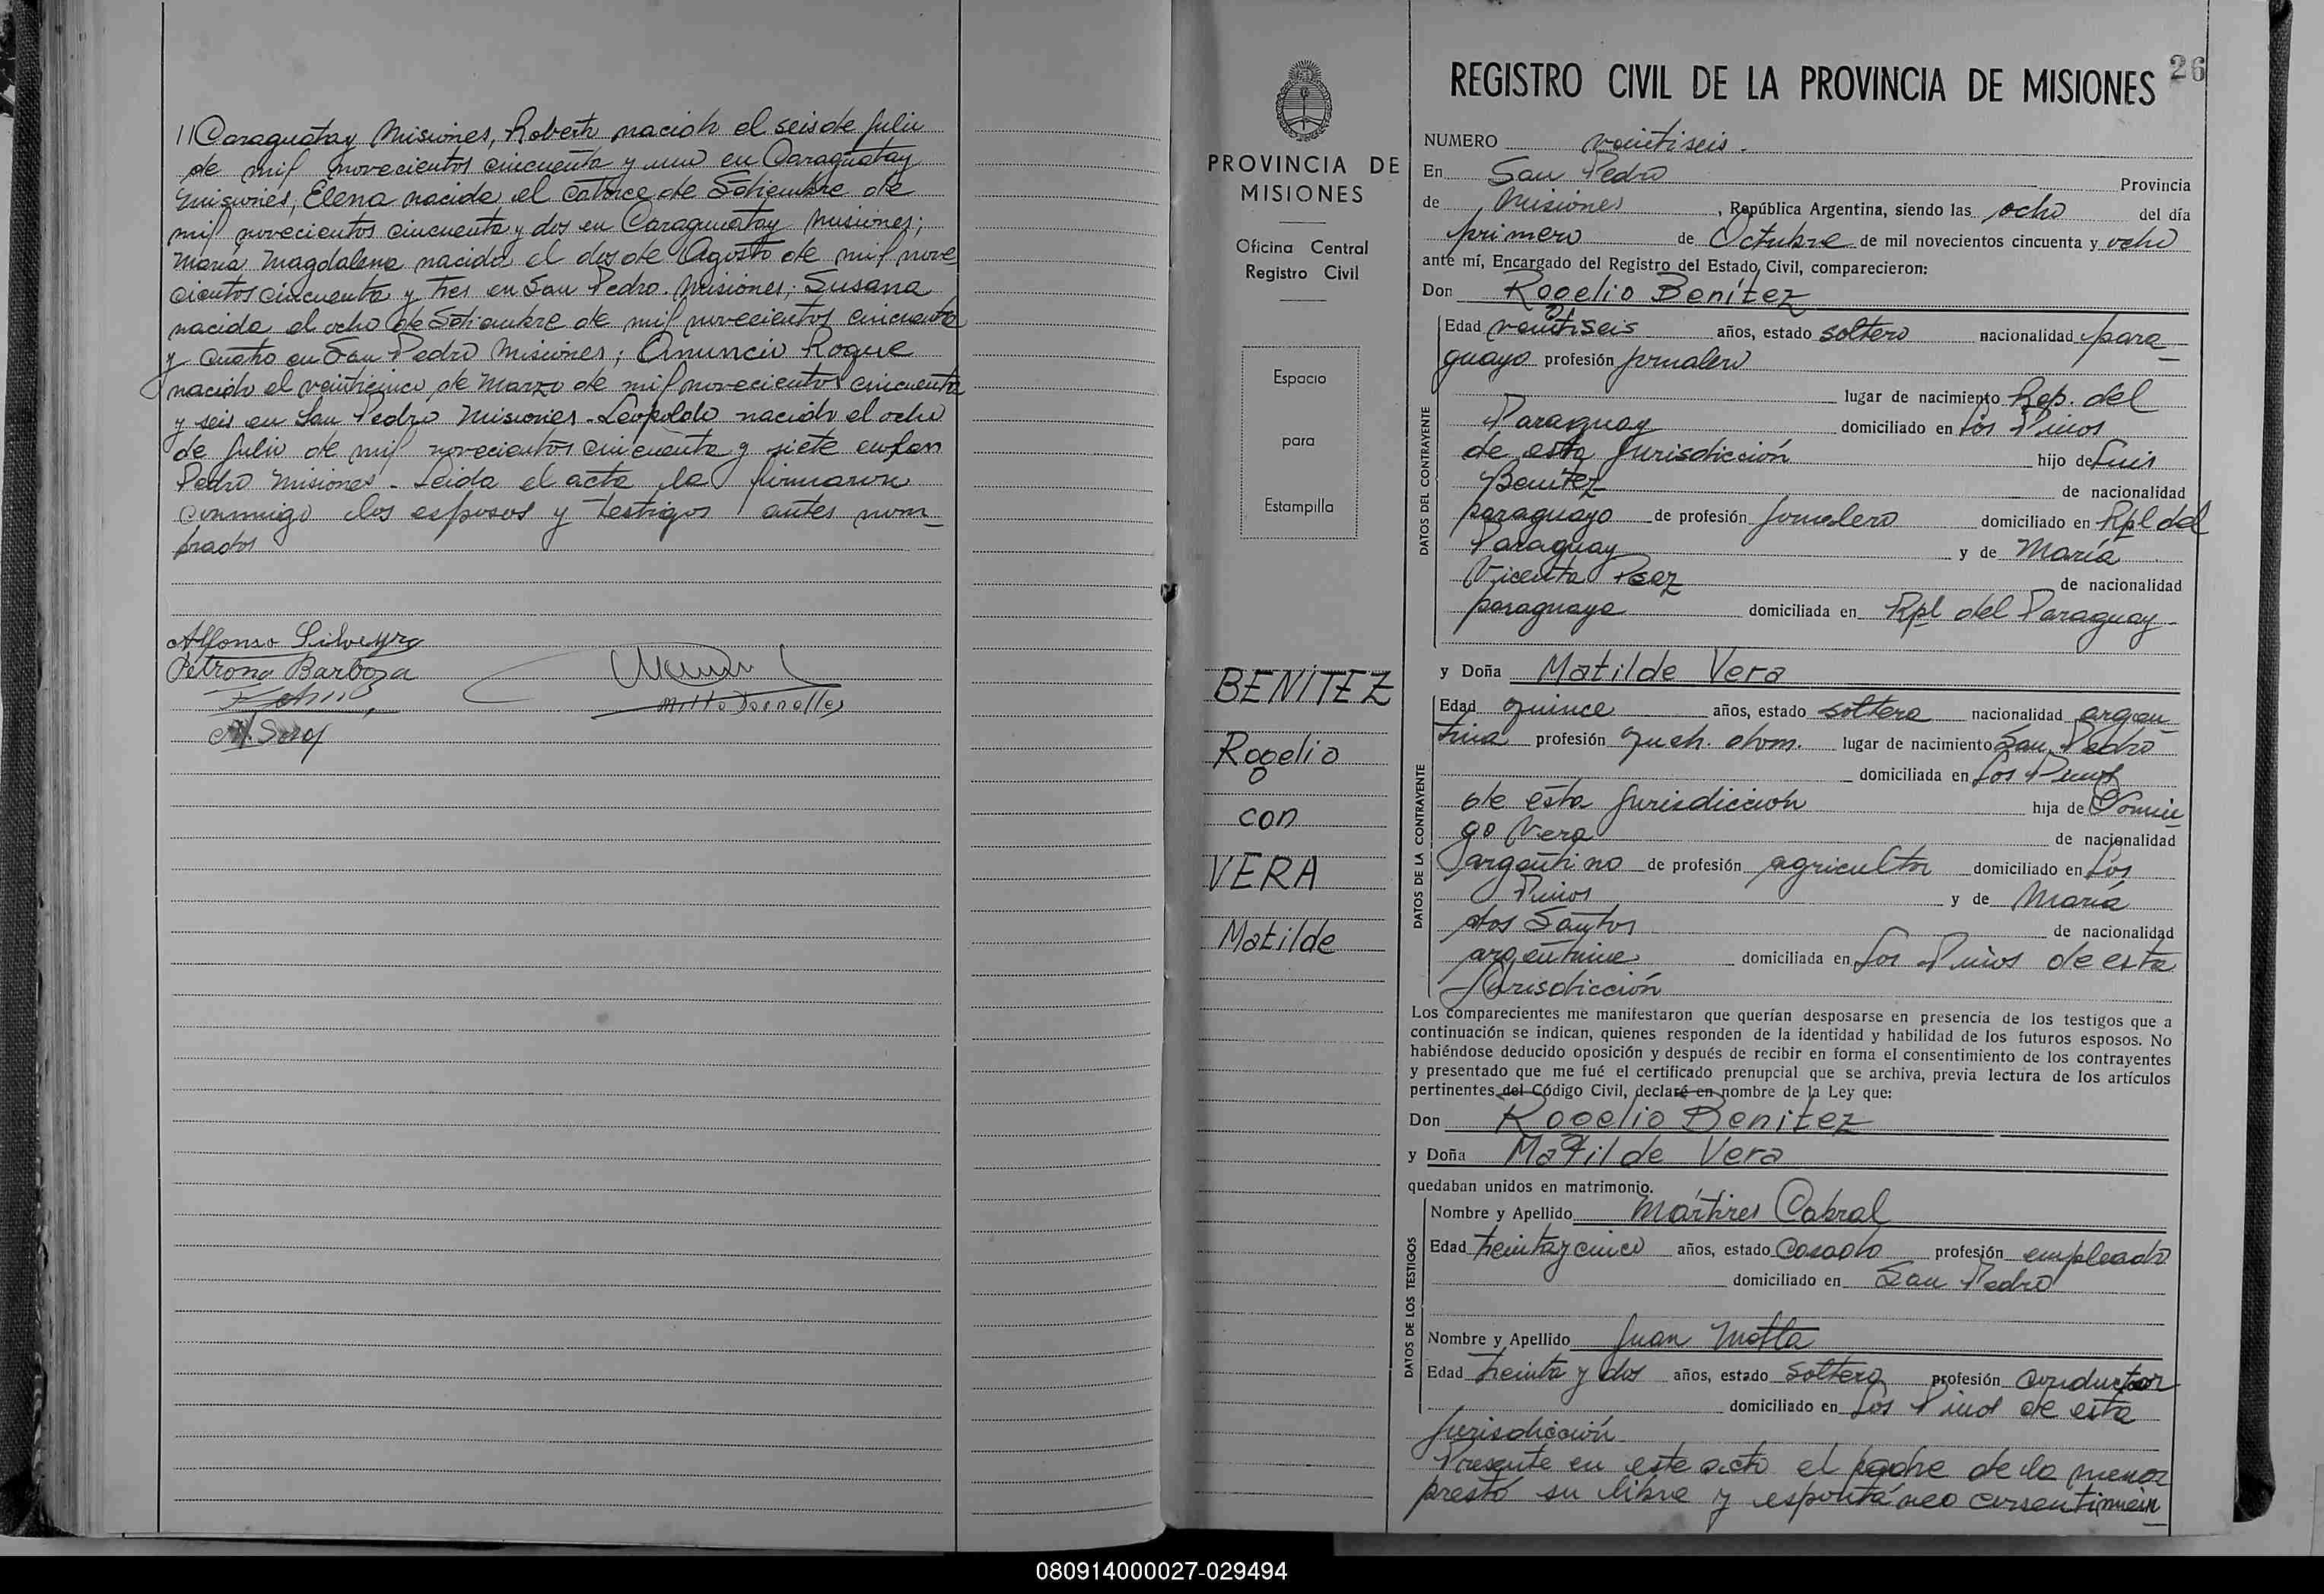 //Caraguatay Misiones, Roberto nacido el seis de Julio
de mil novecientos cincuenta y uno en Caraguatay
Misiones, Elena nacida el catorce de Setiembre de
mil novecientos cincuenta y dos en Caraguatay Misiones;
María Magdalena nacida el dos de Agosto de mil nove
cientos cincuenta y tres en San Pedro. Misiones; Susana
nacida el ocho de Setiembre de mil novecientos cincuenta
y cuatro en San Pedro Misiones; Anuncio Roque
nacido el veinticinco de Marzo de mil novecientos cincuenta
y seis en San Pedro Misiones. Leopoldo nacido el ocho
de Julio de mil novecientos cincuenta y siete en San
Pedro Misiones - Leida el acta la firmaron
conmigo los esposos y testigos antes nom-
brados
Alfonso Silveyra
Petrona Barboza
PROVINCIA DE
MISIONES
Oficina Central
Registro Civil
Espacio
para
Estampilla
BENITEZ
Rogelio
con
VERA
Matilde
REGISTRO CIVIL DE LA PROVINCIA DE MISIONES 26
NUMERO veintiseis.
En San Pedro Provincia
de Misiones, República Argentina, siendo las ocho del día
primero de Octubre de mil novecientos cincuenta y ocho
ante mí, Encargado del Registro del Estado Civil, comparecieron:
Don Rogelio Benítez
DATOS DEL CONTRAYENTE
Edad veintiseis años, estado soltero nacionalidad para-
guayo profesión jornalero
lugar de nacimiento Rep. del
Paraguay domiciliado en Los Pinos
de esta Jurisdicción hijo de Luis
Benitez de nacionalidad
paraguayo de profesión jornalero domiciliado en Rpl del
Paraguay y de María
Vicenta Paez de nacionalidad
paraguaya domiciliada en Rpl del Paraguay
y Doña Matilde Vera
DATOS DE LA CONTRAYENTE
Edad quince años, estado soltera nacionalidad argen-
tina profesión queh. dom. lugar de nacimiento San Pedro
domiciliada en Los Pinos
de esta Jurisdiccion hija de Domin-
go Vera de nacionalidad
argentino de profesión agricultor domiciliado en Los
Pinos y de María
dos Santos de nacionalidad
argentina domiciliada en Los Pinos de esta
Jurisdicción
Los comparecientes me manifestaron que querían desposarse en presencia de los testigos que a
continuación se indican, quienes responden de la identidad y habilidad de los futuros esposos. No
habiéndose deducido oposición y después de recibir en forma el consentimiento de los contrayentes
y presentado que me fué el certificado prenupcial que se archiva, previa lectura de los artículos
pertinentes del Código Civil, declaré en nombre de la Ley que:
Don Rogelio Benitez
y Doña Matilde Vera
quedaban unidos en matrimonio.
DATOS DE LOS TESTIGOS
Nombre y Apellido Mártires Cabral
Edad treinta y cinco años, estado casado profesión empleado
domiciliado en San Pedro
Nombre y Apellido Juan Motta
Edad treinta y dos años, estado soltero profesión conductor
domiciliado en Los Pinos de esta
jurisdicción
Presente en este acto el padre de la menor
prestó su libre y espontáneo consentimien-
080914000027-029494